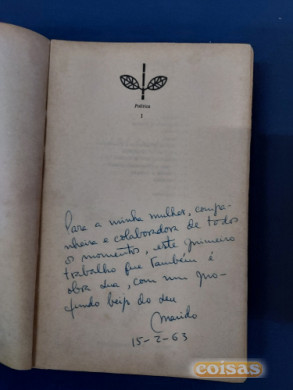 Política
1
Para a minha mulher, compa-
nheira e colaboradora de todos
os momentos, este primeiro
trabalho que também é
obra sua, com um pro-
fundo beijo do seu
Marido
15-2-63
coisas